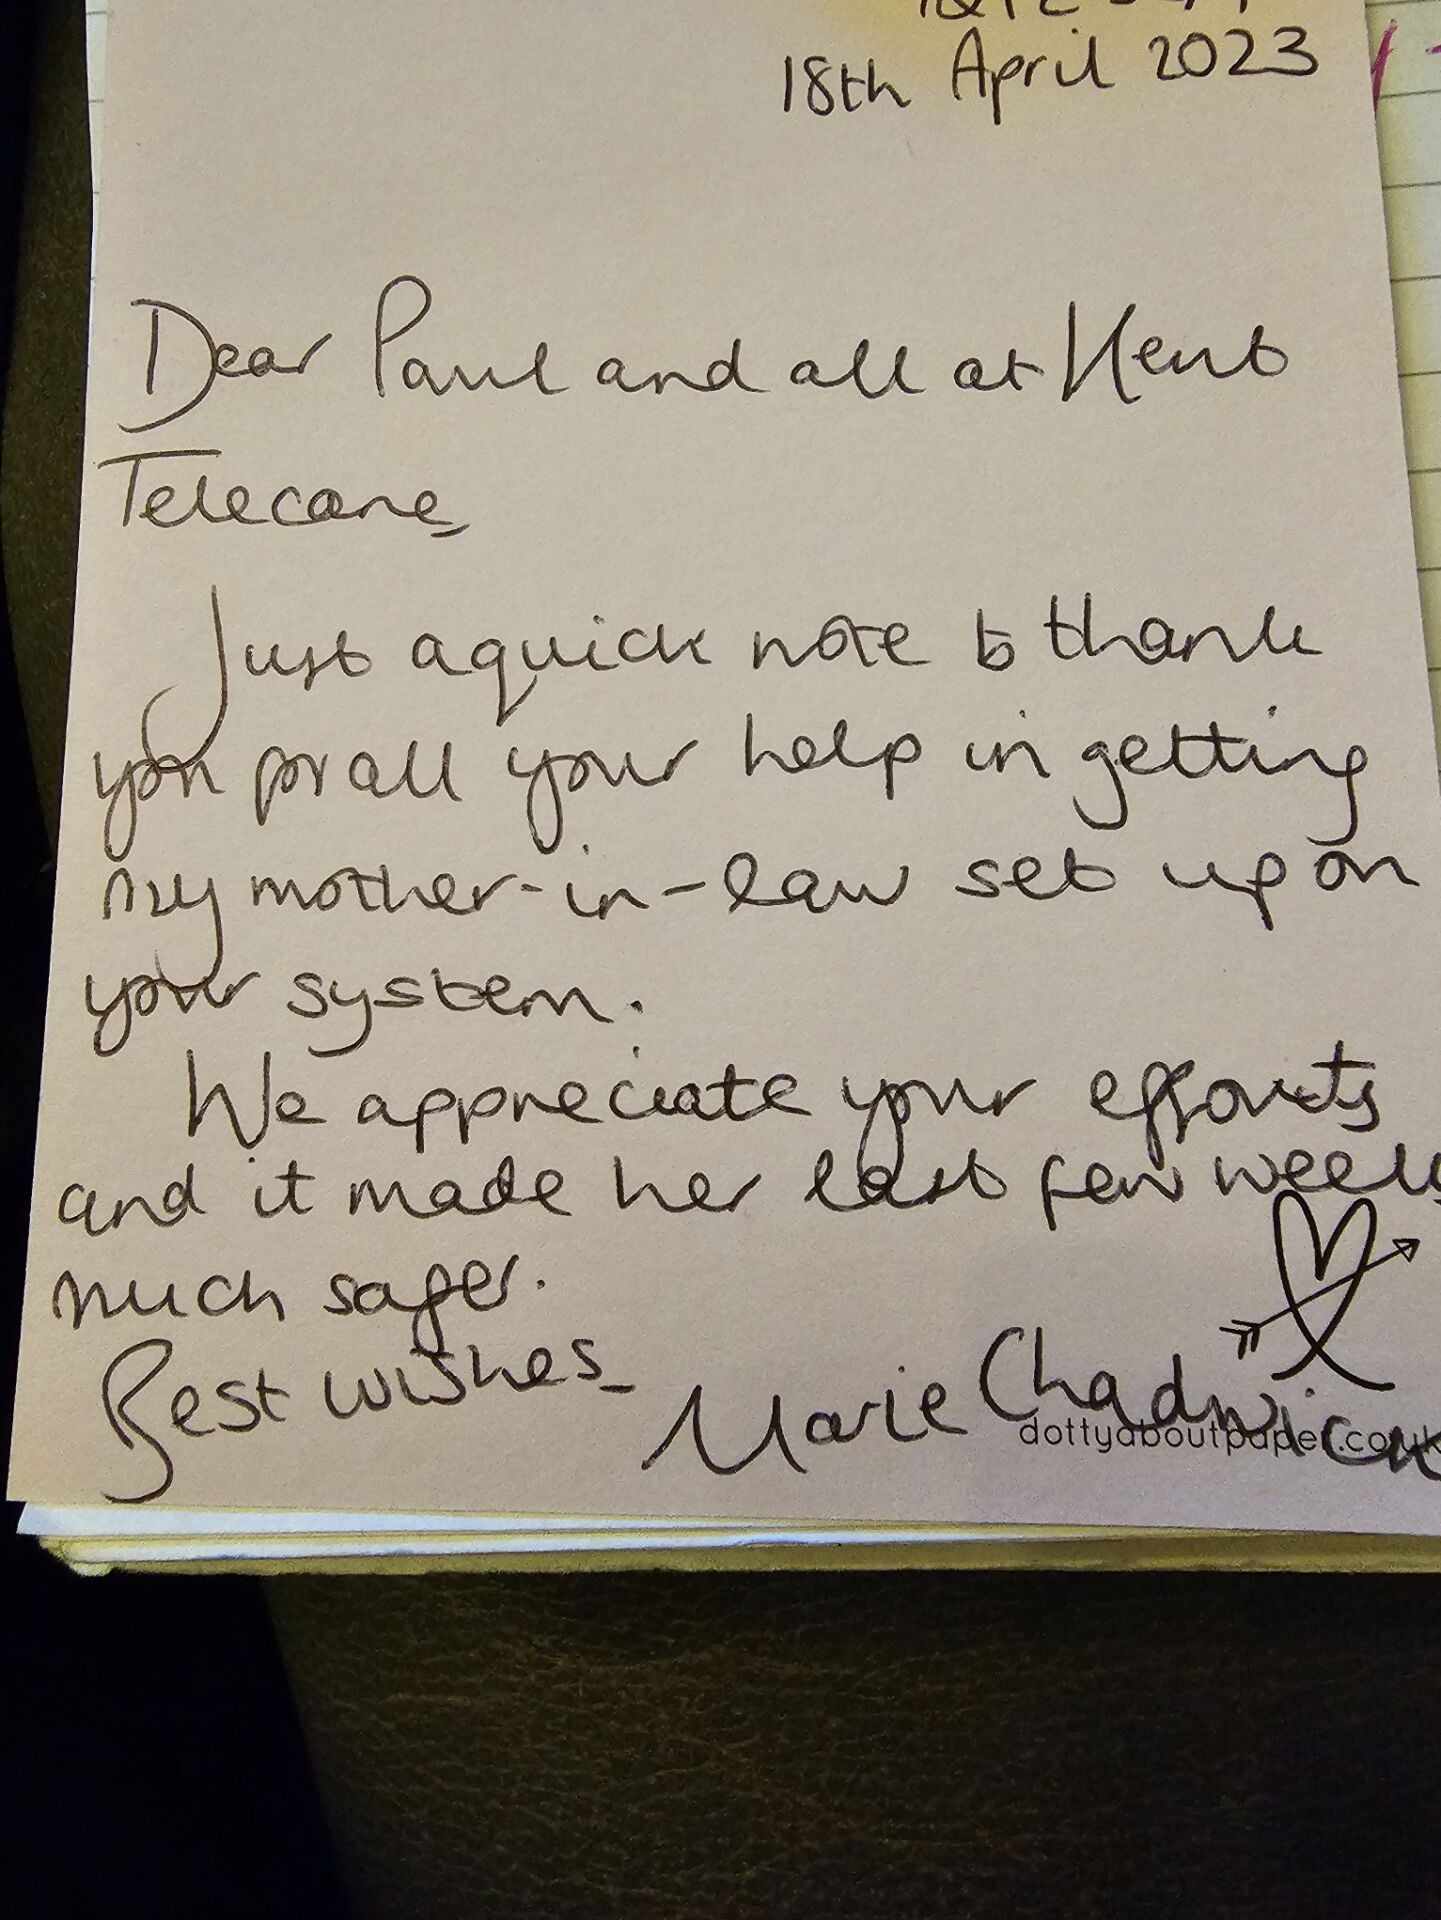 18th April 2023
Dear Paul and all at Kent
Telecare,
Just a quick note to thank
you for all your help in getting
my mother-in-law set up on
your system.
We appreciate your efforts
and it made her last few weeks
much safer.
Best wishes
Marie Chadwick
dottyaboutpaper.co.uk